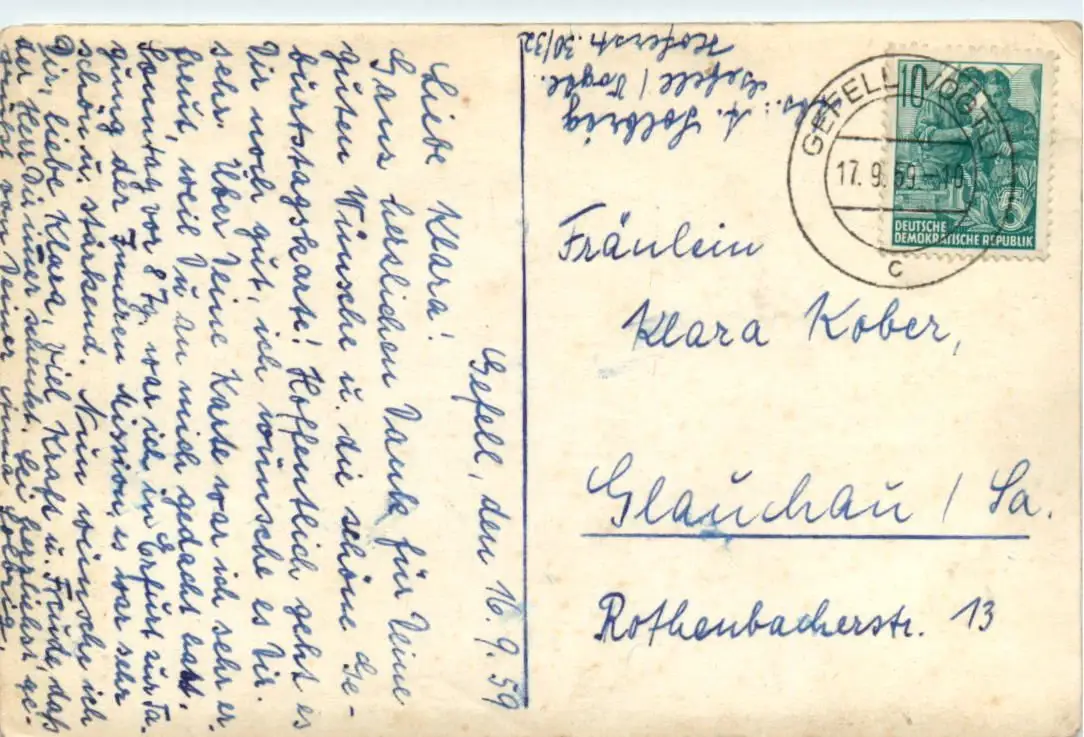 Gefell, den 16.9.59
Liebe Klara!
Ganz herzlichen Dank für Deine
guten Wünsche u. die schöne Ge-
burtstagskarte! Hoffentlich geht es
Dir noch gut, ich wünsche es Dir
sehr. Über Deine Karte war ich sehr er-
freut, weil Du an mich gedacht hast.
Sonntag vor 8 Tg. war ich in Erfurt zur Ta-
gung der Inneren Mission, es war sehr
schön u. stärkend. Nun wünsche ich
Dir, liebe Klara, viel Kraft u. Freude, daß
der Herr Dir immer schenkt. Sei herzlichst ge-
grüßt von Deiner Anna Solbrig.
A. Solbrig
Gefell / Vogtl.
Hoferstr. 30/32
GEFELL (VOGTL)
17.9.59-10
c
10
5
DEUTSCHE
DEMOKRATISCHE REPUBLIK
Fräulein
Klara Kober,
Glauchau / Sa.
Rothenbacherstr. 13